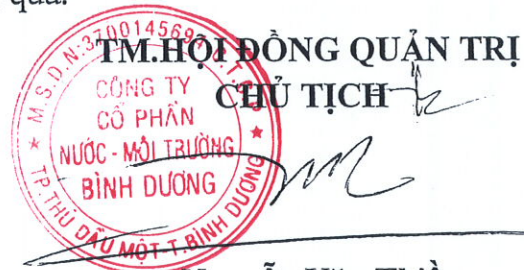 quả.
TM.HỘI ĐỒNG QUẢN TRỊ
CHỦ TỊCH
M.S.D.N:3700145694
CÔNG TY
CỔ PHẦN
NƯỚC - MÔI TRƯỜNG
BÌNH DƯƠNG
TP.THỦ DẦU MỘT-T.BÌNH DƯƠNG